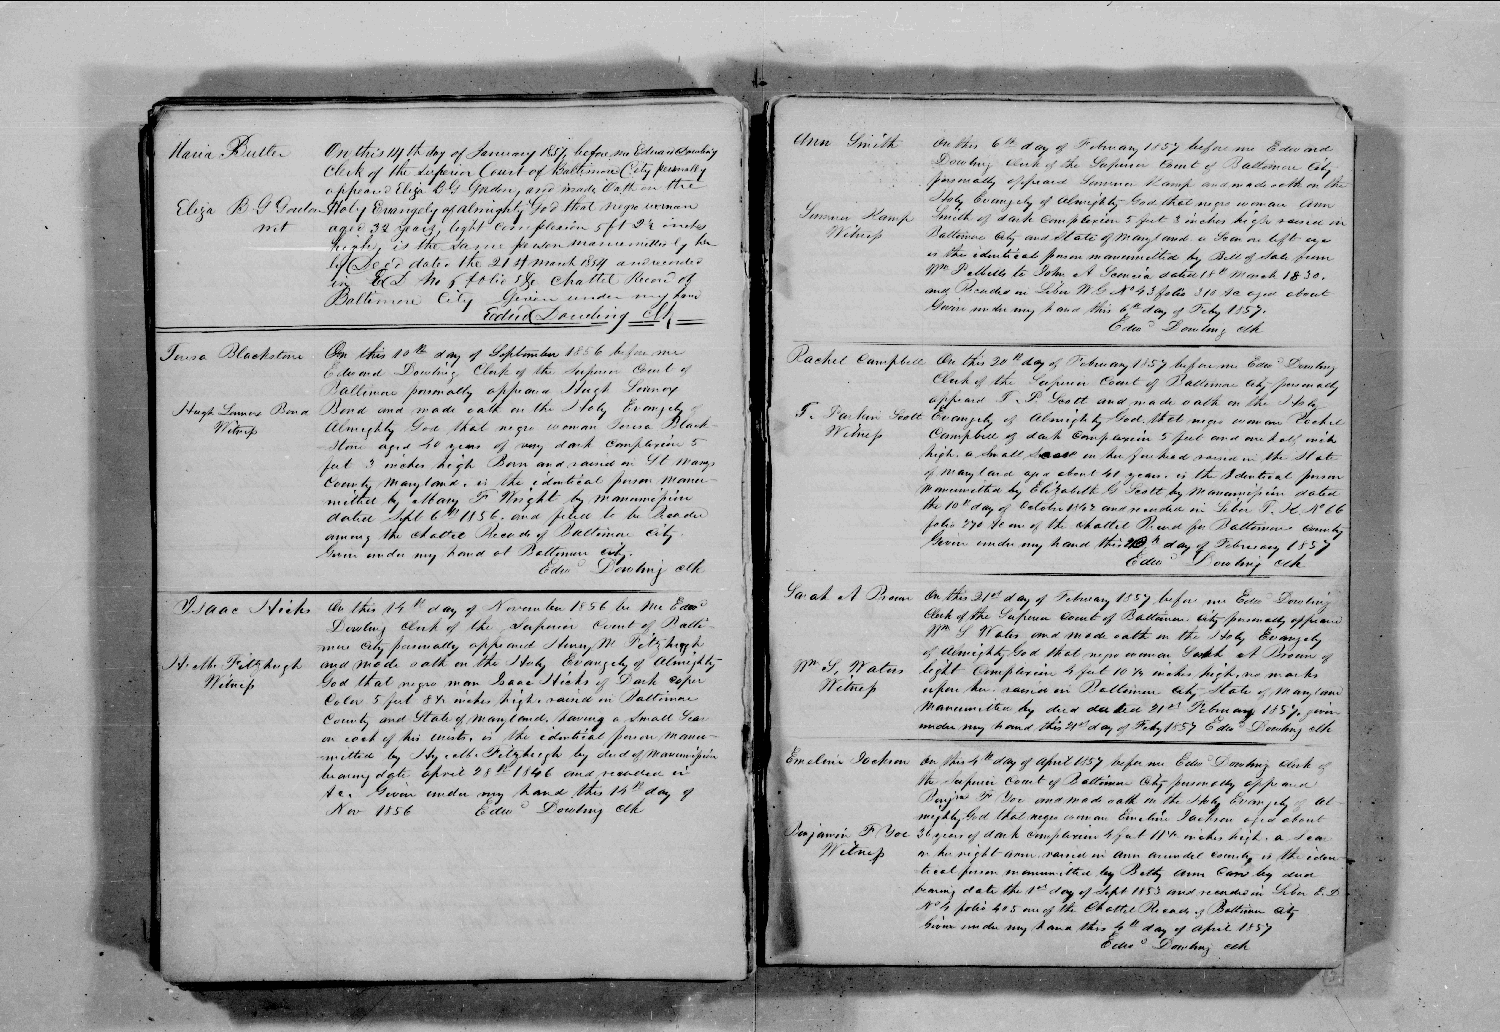 Maria Butler
Eliza B G Gordon
wit
On this 14th day of January 1857, before me Edward Dowling
Clerk of the Superior Court of Baltimore City personally
appeared Eliza B G Gordon, and made Oath on the
Holy Evangely of Almighty God that negro woman
aged 32 years, light complexion 5 ft 2½ inches
high, is the same person manumitted by her
by Deed dated the 21st March 1854 and recorded
in E D No 6 folio &c Chattel Record of
Baltimore City Given under my hand
Edwd Dowling Clk
Teresa Blackstone
Hugh Lennox Bond
Witness
On this 10th day of September 1856 before me
Edward Dowling Clerk of the Superior Court of
Baltimore personally appeared Hugh Lennox
Bond and made oath on the Holy Evangely of
Almighty God that negro woman Teresa Black-
stone aged 40 years of very dark complexion 5
feet 3 inches high Born and raised in St Marys
County Maryland, is the identical person manu-
mitted by Mary F Wright by manumission
dated Sept 6th 1856 and filed to be Recorded
among the Chattel Records of Baltimore City.
Given under my hand at Baltimore city.
Edwd Dowling clk
Isaac Hicks
H. M. Fitzhugh
Witness
On this 14th day of November 1856 be me Edwd
Dowling clerk of the Superior Court of Balti-
more City personally appeared Henry M Fitzhugh
and made oath on the Holy Evangely of Almighty
God that negro man Isaac Hicks of Dark coper
Color 5 feet 8½ inches high, raised in Baltimore
County and State of Maryland, having a Small Scar
on each of his wrists, is the identical person manu-
mitted by Hy. M. Fitzhugh by deed of Manumission
bearing date April 28th 1846 and recorded in
&c. Given under my hand this 14th day of
Nov 1856 Edwd Dowling clk
Ann Smith
Kamp
Witness
On this 6th day of February 1857 before me Edward
Dowling Clerk of the Superior Court of Baltimore City
personally appeared Kamp and made oath on the
Holy Evangely of Almighty God that negro woman Ann
Smith of dark Complexion 5 feet 3 inches high raised in
Baltimore City and State of Maryland a Scar on left eye
is the identical person manumitted by Bill of Sale from
Wm P Mills to John A dated 18th March 1830.
and Recorded in Liber W. G No 43 folio 310 &c aged about
Given under my hand this 6th day of Feby 1857.
Edwd Dowling clk
Rachel Campbell
T. Parkin Scott
Witness
On this 20th day of February 1857 before me Edwd Dowling
Clerk of the Superior Court of Baltimore City personally
appeard T. P. Scott and made oath on the Holy
Evangely of Almighty God that negro woman Rachel
Campbell of dark Complexion 5 feet and one half inch
high. a Small Scar on her forehead raised in the State
of Maryland aged about 41 years. is the Identical person
manumitted by Elizabeth G Scott by Manumission dated
the 10th day of October 1842 and recorded in Liber T. K. No 66
folio 270 &c one of the Chattel Record for Baltimore County
Given under my hand this 20th day of February 1857
Edwd Dowling clk
Sarah A Brown
Wm S. Waters
Witness
On this 21st day of February 1857 before me Edwd Dowling
Clerk of the Superior Court of Baltimore City personally appeared
Wm S Waters and made oath on the Holy Evangely
of Almighty God that negro woman Sarah A Brown of
light Complexion 4 feet 10½ inches high, no marks
upon her. raised in Baltimore City State of Maryland
Manumitted by deed dated 21st February 1857. given
under my hand this 21st day of Feby 1857 Edwd Dowling clk
Emeline Jackson
Benjamin F Yoe
Witness
On this 4th day of April 1857 before me Edwd Dowling clerk of
the Superior Court of Baltimore City personally appeared
Benja F Yoe and made oath on the Holy Evangely of Al-
mighty God that negro woman Emeline Jackson aged about
36 years of dark complexion 4 feet 11½ inches high. a Scar
on her right arm. raised in Ann Arundel County is the iden-
tical person manumitted by Betty Ann by deed
bearing date the 1st day of Sept 1853 and recorded in Liber E. D
No 4 folio 405 one of the Chattel Records of Baltimore City
Given under my hand this 4th day of April 1857
Edwd Dowling clk